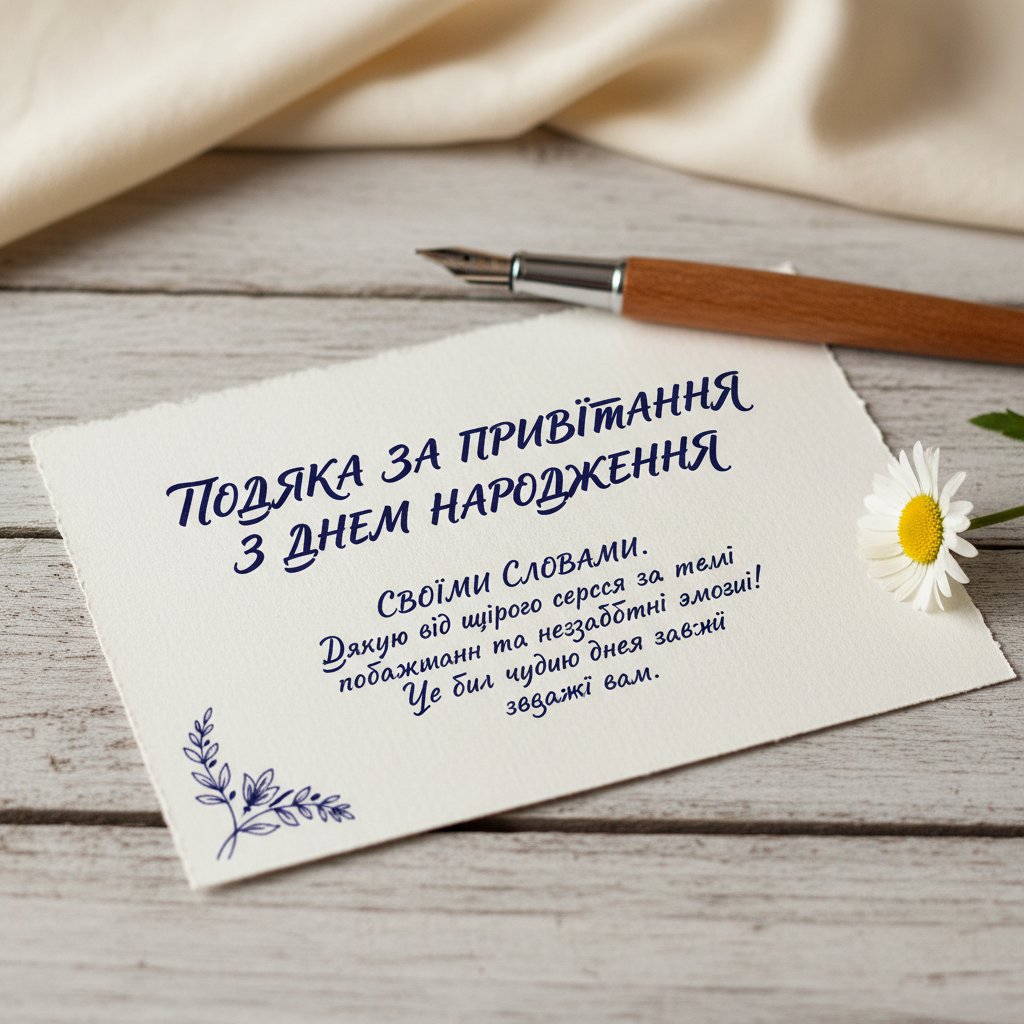 Подяка за привїтання
з днем народження
Своїми Словами.
Дякую від щірого серсся за темі
побажтанн та неззаббтні эмозиі!
Це бил чудию днея завжиї
звважкї вам.